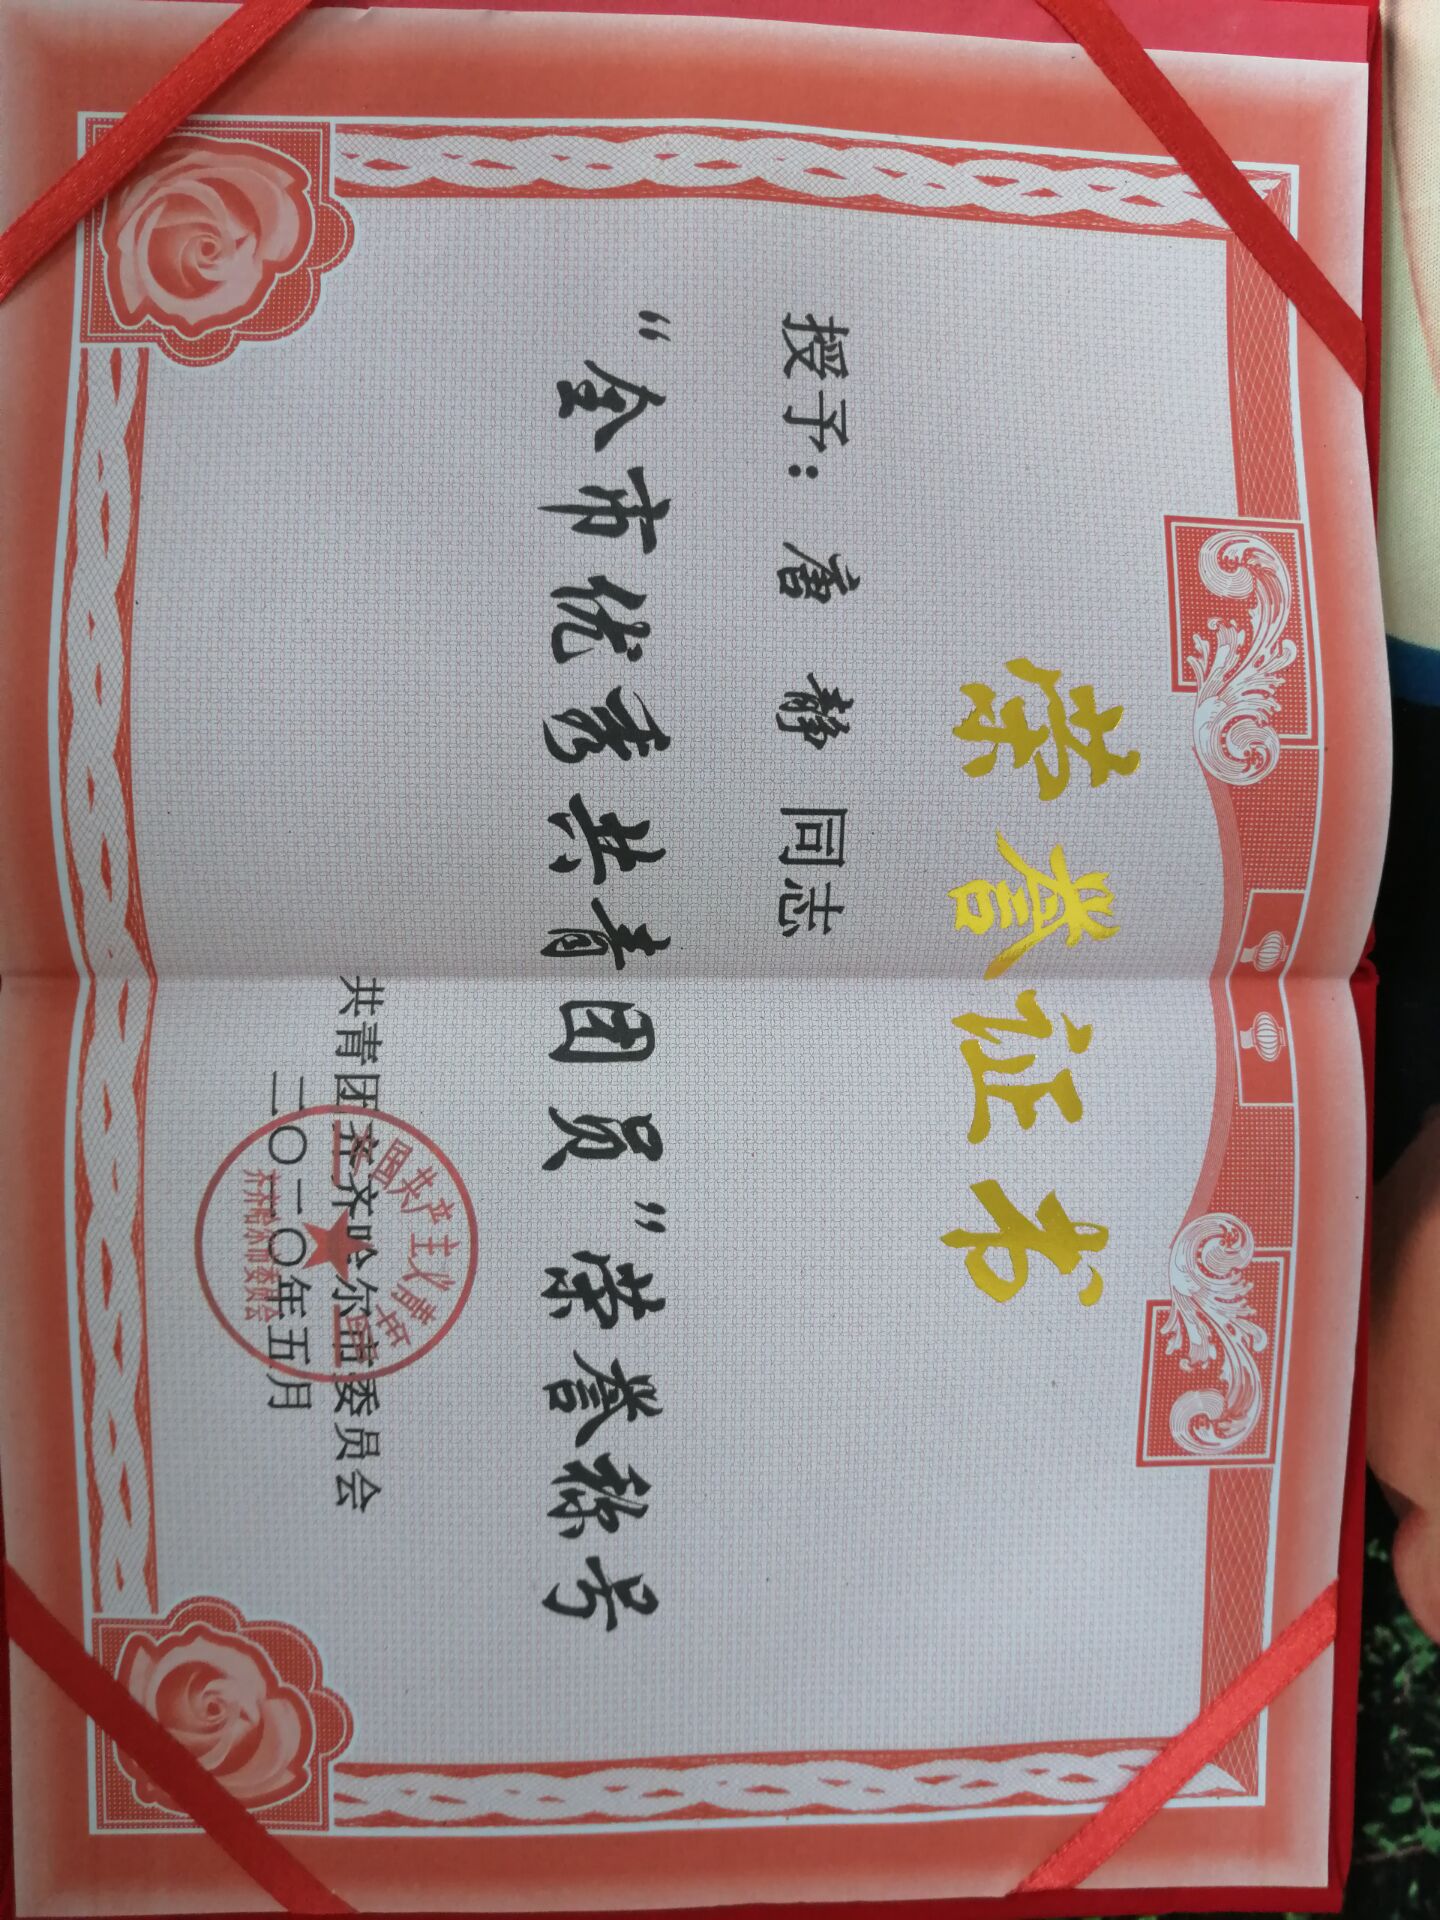 荣誉证书
授予：唐静同志
“全市优秀共青团员”荣誉称号
共青团齐齐哈尔市委员会
二〇一〇年五月
中国共产主义青年团
齐齐哈尔市委员会